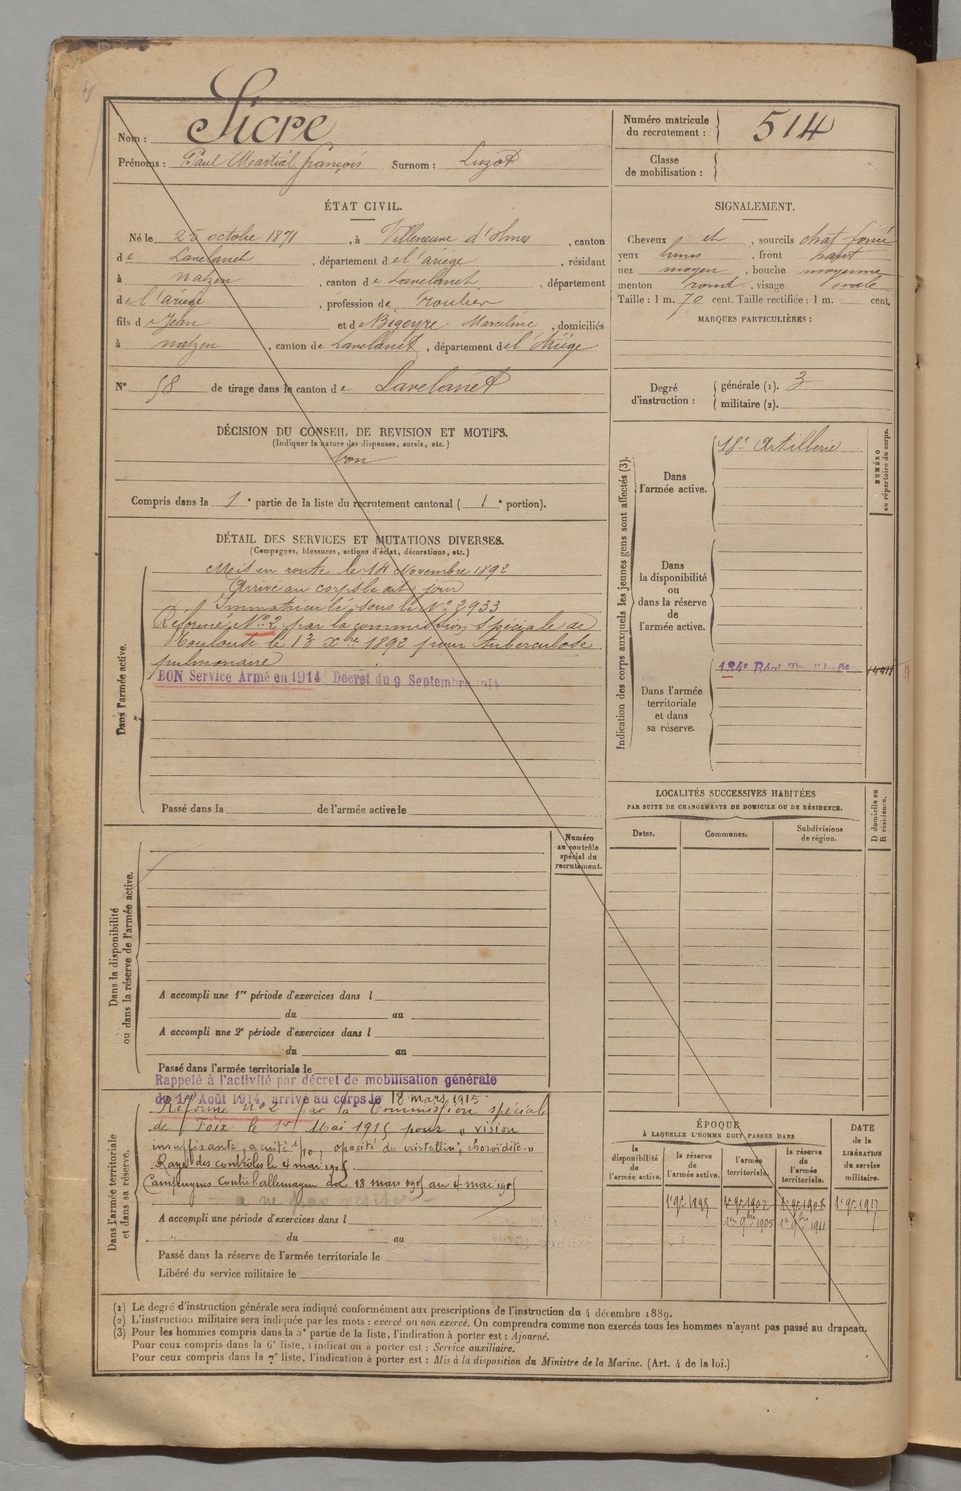 Nom : Sicre
Prénoms : Paul Martial François Surnom : Luzot
Numéro matricule du recrutement : 514
Classe de mobilisation :
ÉTAT CIVIL.
Né le 25 octobre 1871, à Villeneuve d'Olmes, canton
de Lavelanet, département de l'ariège, résidant
à nalzen, canton de Lavelanet, département
de l'ariège, profession de roulier
fils de Jean et de Bigeyre Marceline, domiciliés
à nalzen, canton de Lavelanet, département de l'Ariège
N° 58 de tirage dans le canton de Lavelanet
SIGNALEMENT.
Cheveux et, sourcils chat. foncé
yeux bruns, front haut
nez moyen, bouche moyenne
menton rond, visage ovale
Taille : 1 m. 70 cent. Taille rectifiée : 1 m. cent.
MARQUES PARTICULIÈRES :
Degré d'instruction : générale (1). 3
militaire (2).
DÉCISION DU CONSEIL DE REVISION ET MOTIFS.
(Indiquer la nature des dispenses, sursis, etc.)
bon
Compris dans la 1e partie de la liste du recrutement cantonal ( 1e portion).
DÉTAIL DES SERVICES ET MUTATIONS DIVERSES.
(Campagnes, blessures, actions d'éclat, décorations, etc.)
Dans l'armée active.
Mis en route le 14 Novembre 1892
Arrivé au corps le dit jour
Immatriculé sous le N° 3933
Réformé N° 2 par la commission spéciale de
Toulouse le 13 Xbre 1892 pour tuberculose
pulmonaire
BON Service Armé en 1914 Décret du 9 Septembre 1914
Passé dans la de l'armée active le
Indication des corps auxquels les jeunes gens sont affectés (3).
NUMÉRO au répertoire du corps.
Dans l'armée active.
18e Artillerie
Dans la disponibilité ou dans la réserve de l'armée active.
Dans l'armée territoriale et dans sa réserve.
LOCALITÉS SUCCESSIVES HABITÉES
PAR SUITE DE CHANGEMENTS DE DOMICILE OU DE RÉSIDENCE.
Dates. Communes. Subdivisions de région.
D domicile ou R résidence.
Numéro au contrôle spécial du recrutement.
Dans la disponibilité ou dans la réserve de l'armée active.
A accompli une 1re période d'exercices dans l
du au
A accompli une 2e période d'exercices dans l
du au
Passé dans l'armée territoriale le
Rappelé à l'activité par décret de mobilisation générale
du 1er Août 1914, arrivé au corps le 18 mars 1915
Dans l'armée territoriale et dans sa réserve.
Réformé n° 2 par la Commission spéciale
de Foix le 1er Mai 1915 pour " vision
insuffisante, acuité 1/10, opacité du cristallin, choroïdite "
Rayé des contrôles le 4 mai 1915
Campagnes Contre l'allemagne du 18 mars 1915 au 4 mai 1915
A accompli une période d'exercices dans l
du au
Passé dans la réserve de l'armée territoriale le
Libéré du service militaire le
ÉPOQUE
À LAQUELLE L'HOMME DOIT PASSER DANS
la disponibilité de l'armée active.
la réserve de l'armée active.
l'armée territoriale.
la réserve de l'armée territoriale.
DATE de la LIBÉRATION du service militaire.
1er 9bre 1895 1er 9bre 1902 1er 9bre 1908 1er 9bre 1917
1er 9bre 1905 1er 9bre 1911
(1) Le degré d'instruction générale sera indiqué conformément aux prescriptions de l'instruction du 4 décembre 1889.
(2) L'instruction militaire sera indiquée par les mots : exercé ou non exercé. On comprendra comme non exercés tous les hommes n'ayant pas passé au drapeau.
(3) Pour les hommes compris dans la 5e partie de la liste, l'indication à porter est : Ajourné.
Pour ceux compris dans la 6e liste, l'indication à porter est : Service auxiliaire.
Pour ceux compris dans la 7e liste, l'indication à porter est : Mis à la disposition du Ministre de la Marine. (Art. 4 de la loi.)